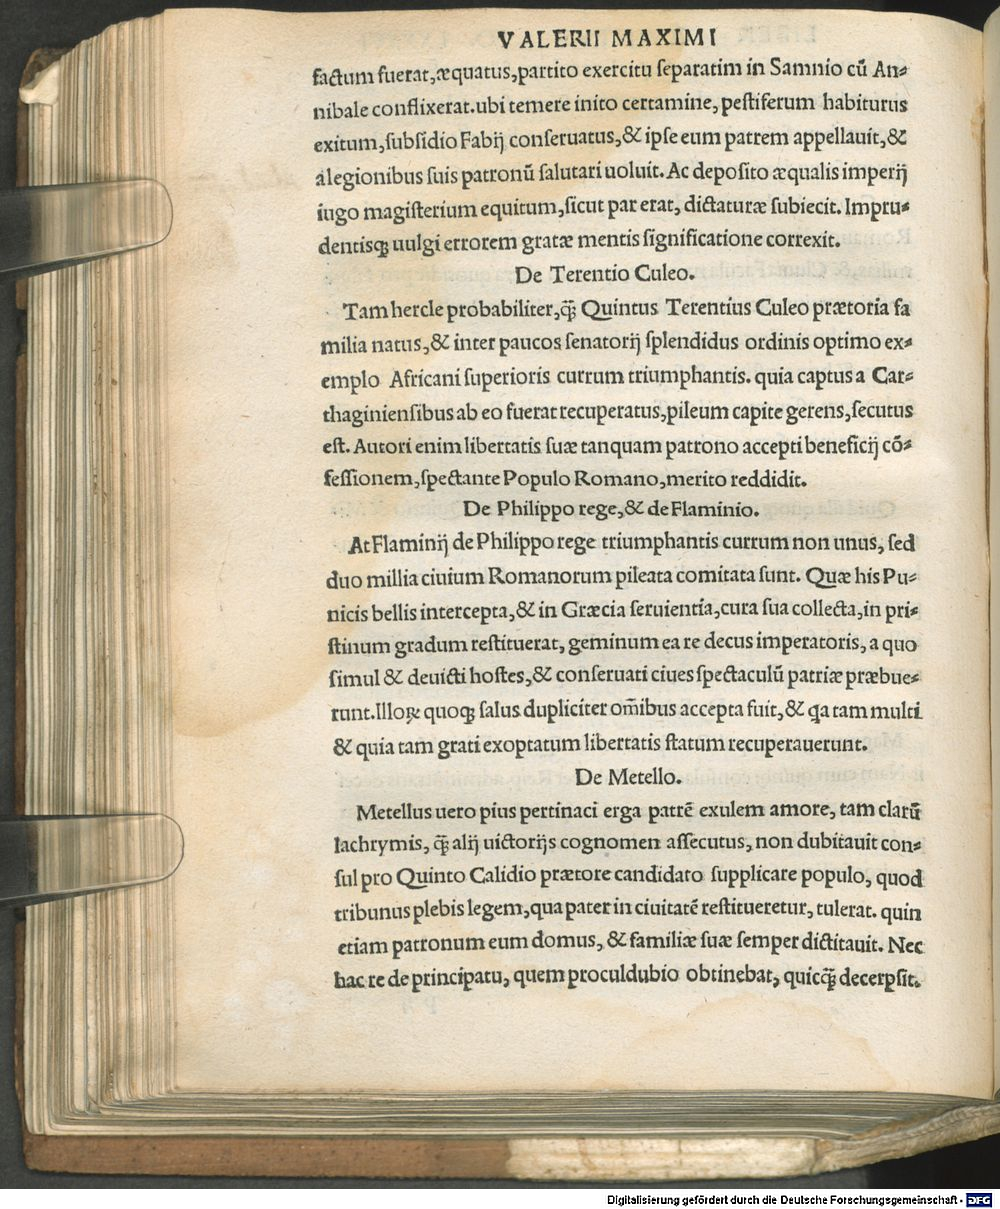 VALERII MAXIMI
factum fuerat,æquatus,partito exercitu ſeparatim in Samnio cū An⸗
nibale conflixerat.ubi temere inito certamine, peſtiferum habiturus
exitum,ſubſidio Fabij conſeruatus,& ipſe eum patrem appellauit,&
a legionibus ſuis patronū ſalutari uoluit. Ac depoſito æqualis imperij
iugo magiſterium equitum,ſicut par erat, dictaturæ ſubiecit. Impru⸗
dentisq; uulgi errorem gratæ mentis ſignificatione correxit.
De Terentio Culeo.
Tam hercle probabiliter,q̃ Quintus Terentius Culeo prætoria fa
milia natus,& inter paucos ſenatorij ſplendidus ordinis optimo ex⸗
emplo Africani ſuperioris currum triumphantis. quia captus a Car⸗
thaginienſibus ab eo fuerat recuperatus,pileum capite gerens,ſecutus
eſt. Autori enim libertatis ſuæ tanquam patrono accepti beneficij cō⸗
feſſionem,ſpectante Populo Romano,merito reddidit.
De Philippo rege,& de Flaminio.
At Flaminij de Philippo rege triumphantis currum non unus, ſed
duo millia ciuium Romanorum pileata comitata ſunt. Quæ his Pu⸗
nicis bellis intercepta,& in Græcia ſeruientia,cura ſua collecta,in pri⸗
ſtinum gradum reſtituerat, geminum ea re decus imperatoris, a quo
ſimul & deuicti hoſtes,& conſeruati ciues ſpectaculū patriæ præbue⸗
runt.Illoꝝ quoq; ſalus dupliciter om̄ibus accepta fuit,& qa tam multi
& quia tam grati exoptatum libertatis ſtatum recuperauerunt.
De Metello.
Metellus uero pius pertinaci erga patrē exulem amore, tam clarū
lachrymis, q̃ alij uictorijs cognomen aſſecutus, non dubitauit con⸗
ſul pro Quinto Calidio prætore candidato ſupplicare populo, quod
tribunus plebis legem,qua pater in ciuitatē reſtitueretur, tulerat. quin
etiam patronum eum domus, & familiæ ſuæ ſemper dictitauit. Nec
hac re de principatu, quem proculdubio obtinebat, quicq̃ decerpſit.
Digitalisierung gefördert durch die Deutsche Forschungsgemeinschaft - DFG